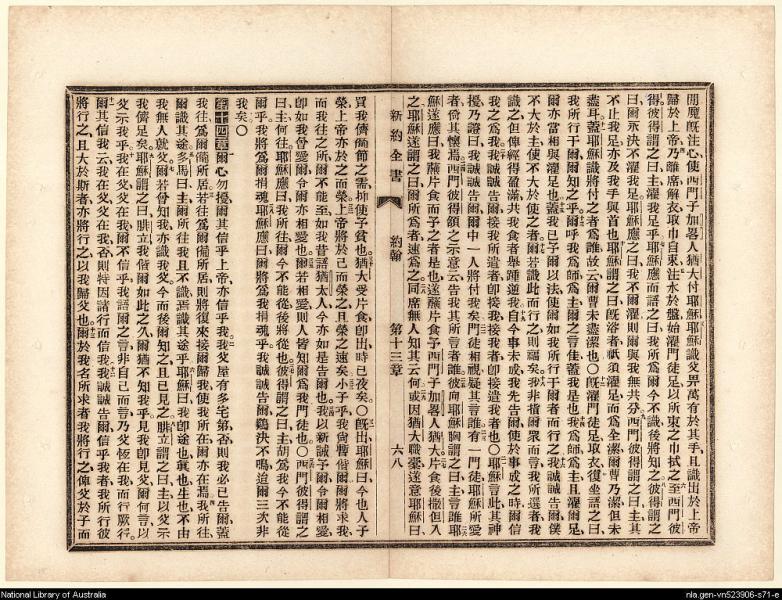 間魔旣注心使西門子加畧人猶大付耶穌耶穌識父畀萬有於其手且識出於上帝
歸於上帝乃離席解衣取巾自束注水於盤始濯門徒足以所束之巾拭之至西門彼
得彼得謂之曰主濯我足乎耶穌應而語之曰我所爲爾今不識後將知之彼得謂之
曰爾永決不濯我足耶穌應之曰我不爾濯則爾與我無共分西門彼得謂之曰主其
不止我足亦及我手與首也耶穌謂之曰旣浴者祇須濯足而爲全潔爾曹乃潔但未
盡耳蓋耶穌識將付之者爲誰故云爾曹未盡潔也〇旣濯門徒足取衣復坐語之曰
我所行于爾爾知之乎爾呼我爲師爲主爾之言佳蓋我是也我爲師爲主且濯爾足
爾亦當相與濯足也蓋我已予爾以法使爾如我所行于爾者而行之我誠誠告爾僕
不大於主使不大於使之者爾若識此而行之則福矣我非指爾衆而言我所選者我
識之但俾經得盈滿共我食者舉踵逾我自今事未成我先告爾使於事成之時爾信
我之爲我誠誠告爾接我所遣者卽接我接我者卽接遣我者也〇耶穌言此其神
擾乃證曰我誠誠告爾爾中一人將付我矣門徒相視疑其言誰有一門徒耶穌所愛
者倚其懷焉西門彼得頷之示意云告我其所言者誰彼向耶穌胸謂之曰主言誰耶
穌遂應曰我蘸片食而予之者是也遂蘸片食予西門子加畧人猶大片食後撒但入
之耶穌遂謂之曰爾所爲者速爲之同席無人知其云何或因猶大職橐遂意耶穌曰
新約全書 約翰 第十三章 六八
買我儕備節之需抑使予貧也猶大受片食卽出時已夜矣〇旣出耶穌曰今也人子
榮上帝亦於之而榮上帝將於己而榮之且榮之速矣小子乎我尙暫偕爾爾將求我
而我往之所爾不能至如我昔語猶太人今亦如是告爾也我以新誡予爾令爾相愛
卽如我曾愛爾令爾亦相愛也爾若相愛則人皆知爾爲我門徒也〇西門彼得謂之
曰主何往耶穌應曰我所往爾今不能從後將從也彼得謂之曰主胡爲我今不能從
爾乎我將爲爾捐魂耶穌應曰爾將爲我捐魂乎我誠誠告爾鷄決不鳴迨爾三次非
我矣〇
第十四章爾心勿擾爾其信乎上帝亦信乎我我父屋有多宅第否則我必已告爾蓋
我往爲爾備所居若往爲爾備所居則將復來接爾歸我使我所在爾亦在焉我所往
爾識其途多馬曰主爾所往我且不識焉識其途乎耶穌曰我卽途也眞也生也不由
我無人就父爾若曾知我亦識我父今而後爾知之且已見之腓立謂之曰主以父示
我儕足矣耶穌謂之曰腓立我偕爾如此之久爾猶不知我乎見我卽見父爾何言以
父示我乎我在父父在我爾不信乎我語爾之言非自己而言乃父恆在我而行厥行
爾其信我云我在父父在我否則特因諸行而信我我誠誠告爾信乎我者我所行彼
將行之且大於斯者亦將行之以我歸父也爾於我名所求者我將行之俾父於子而
National Library of Australia
nla.gen-vn523906-s71-e